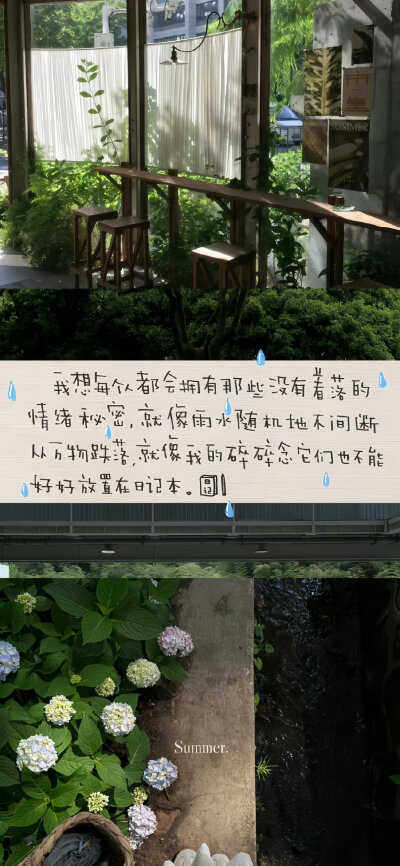 SUMMER
我想每个人都会拥有那些没有着落的
情绪秘密,就像雨水随机地不间断
从万物跌落,就像我的碎碎念它们也不能
好好放置在日记本。
Summer.